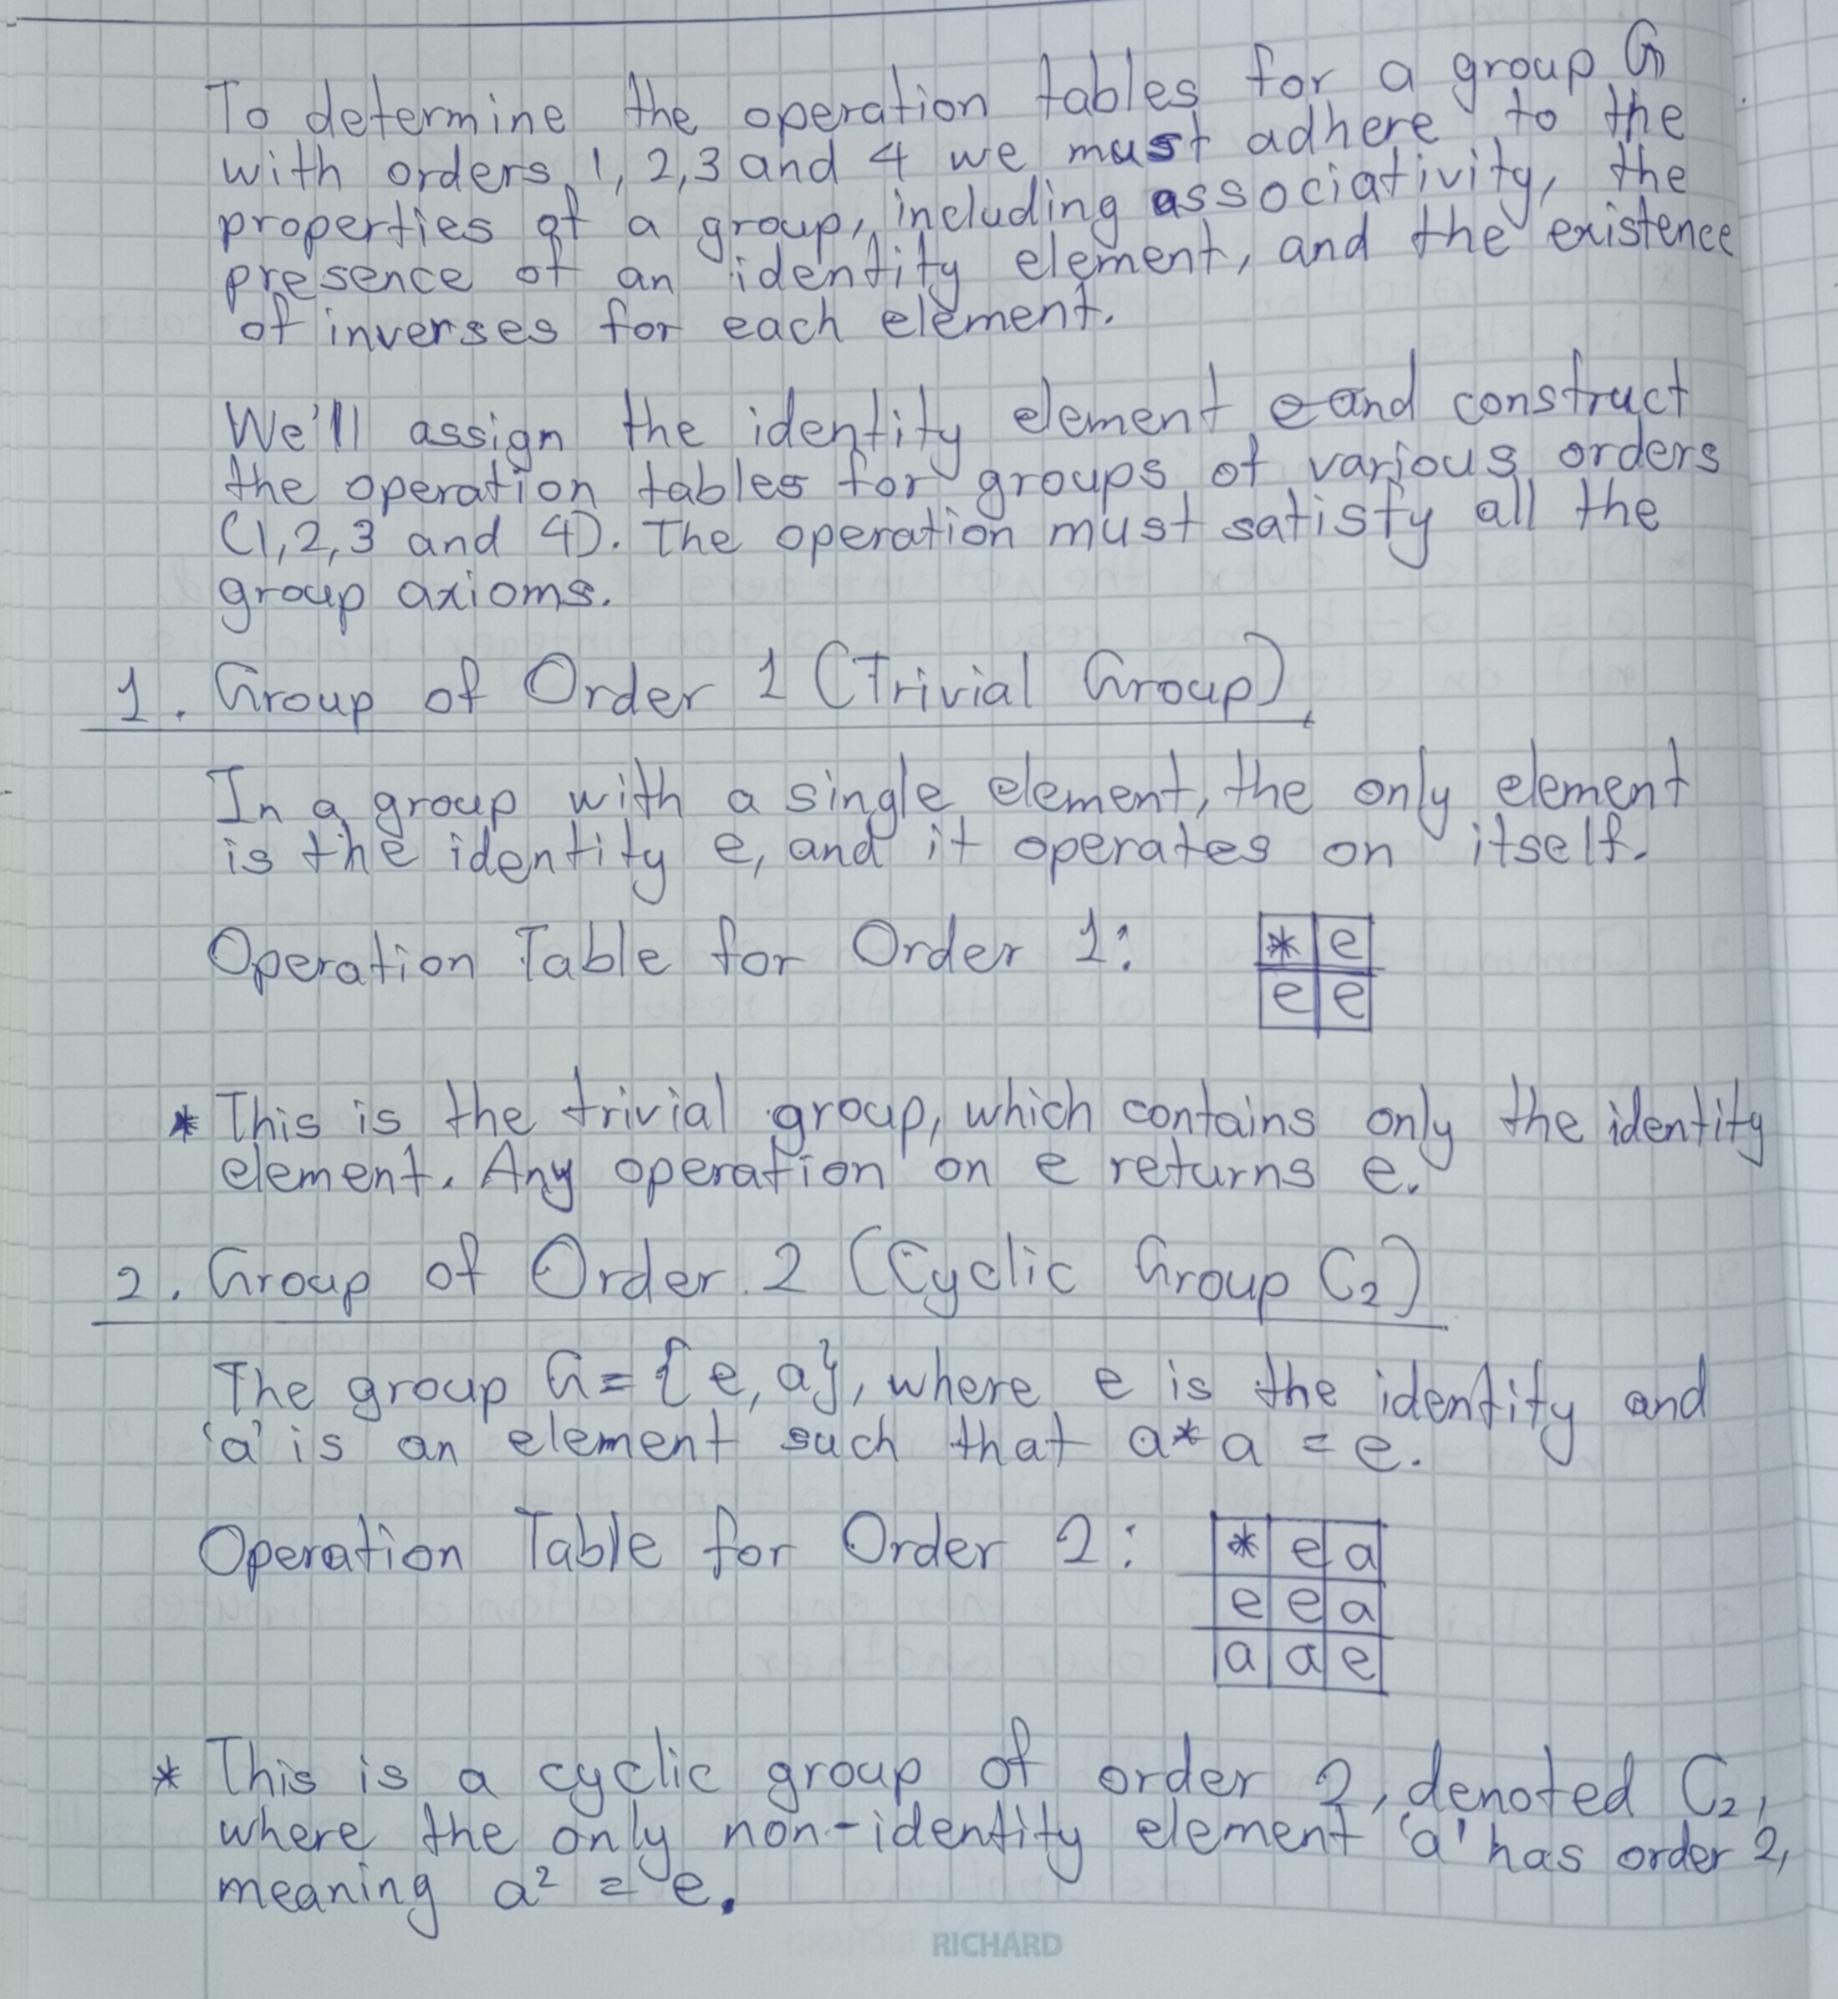 To determine the operation tables for a group G
with orders 1, 2, 3 and 4 we must adhere to the
properties of a group, including associativity, the
presence of an identity element, and the existence
of inverses for each element.
We'll assign the identity element e and construct
the operation tables for groups of various orders
(1, 2, 3 and 4). The operation must satisfy all the
group axioms.
1. Group of Order 1 (Trivial Group)
In a group with a single element, the only element
is the identity e, and it operates on itself.
Operation Table for Order 1:
* e
e e
* This is the trivial group, which contains only the identity
element. Any operation on e returns e.
2. Group of Order 2 (Cyclic Group C₂)
The group G = {e, a}, where e is the identity and
'a' is an element such that a * a = e.
Operation Table for Order 2:
* e a
e e a
a a e
* This is a cyclic group of order 2, denoted C₂,
where the only non-identity element 'a' has order 2,
meaning a² = e.
RICHARD